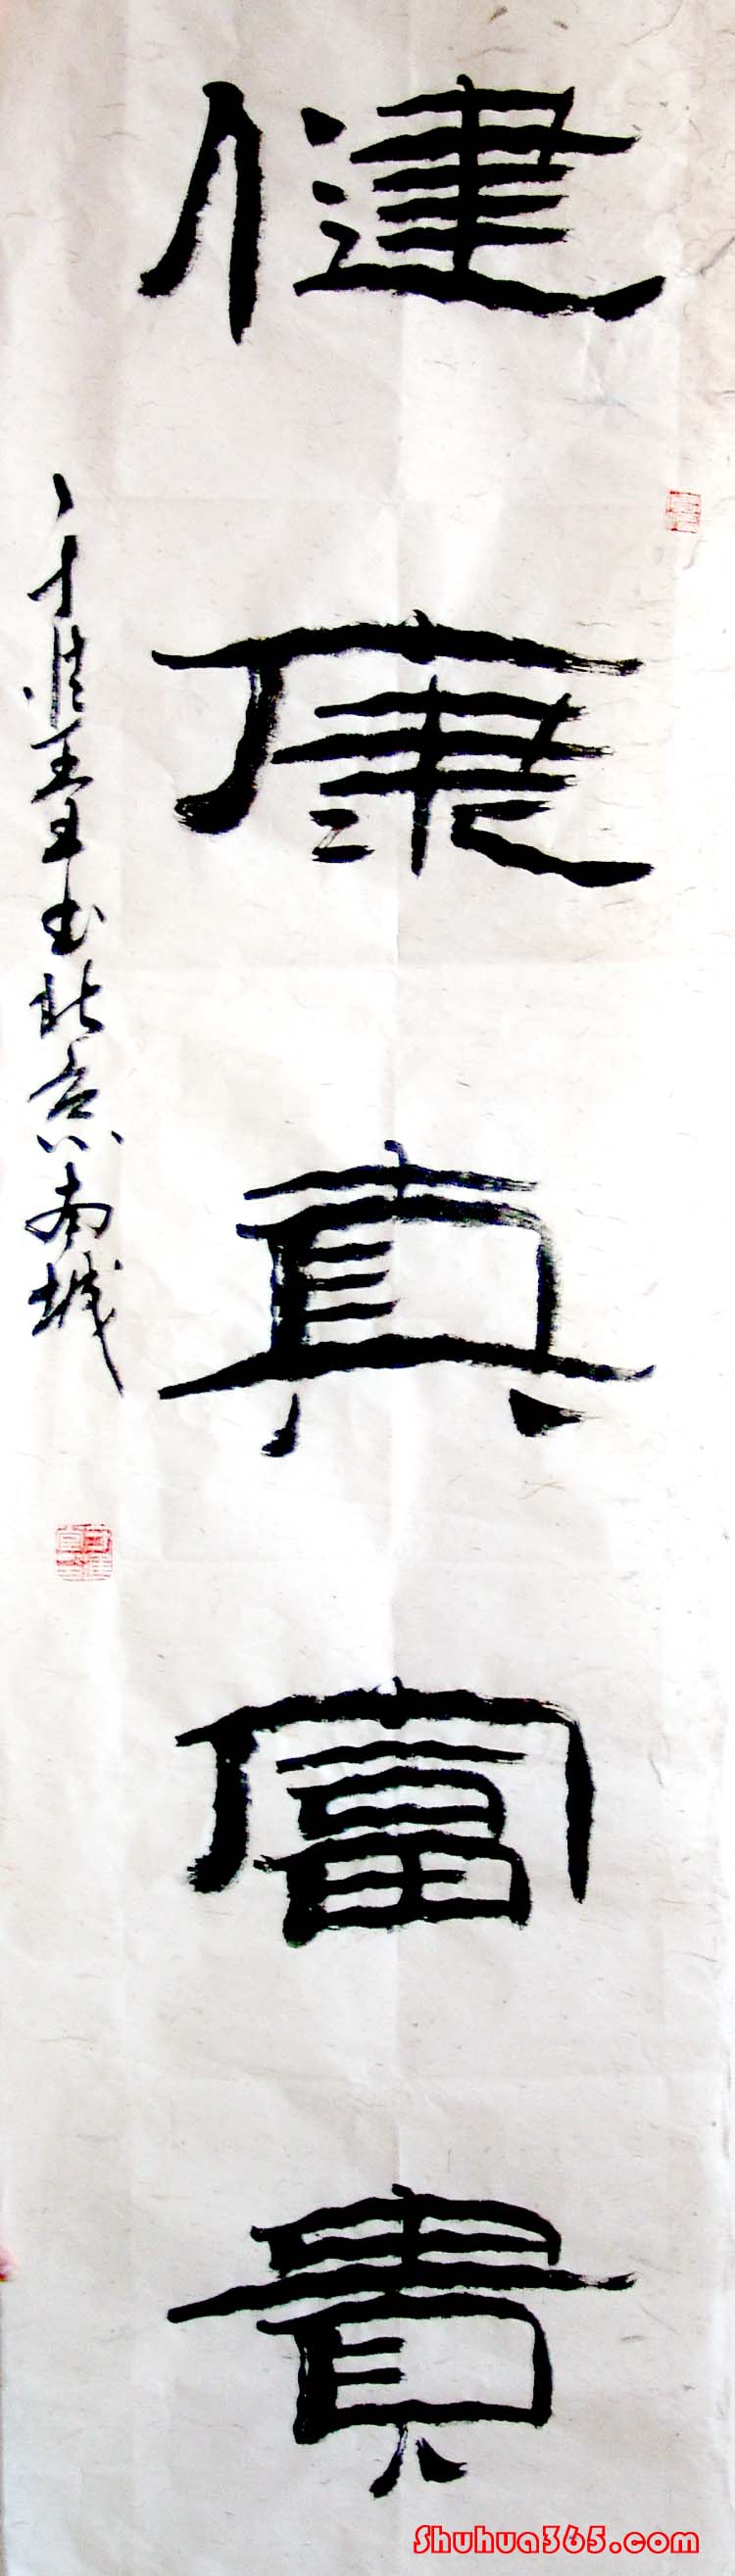 健康真富貴
書北京南城
Shuhua365.com